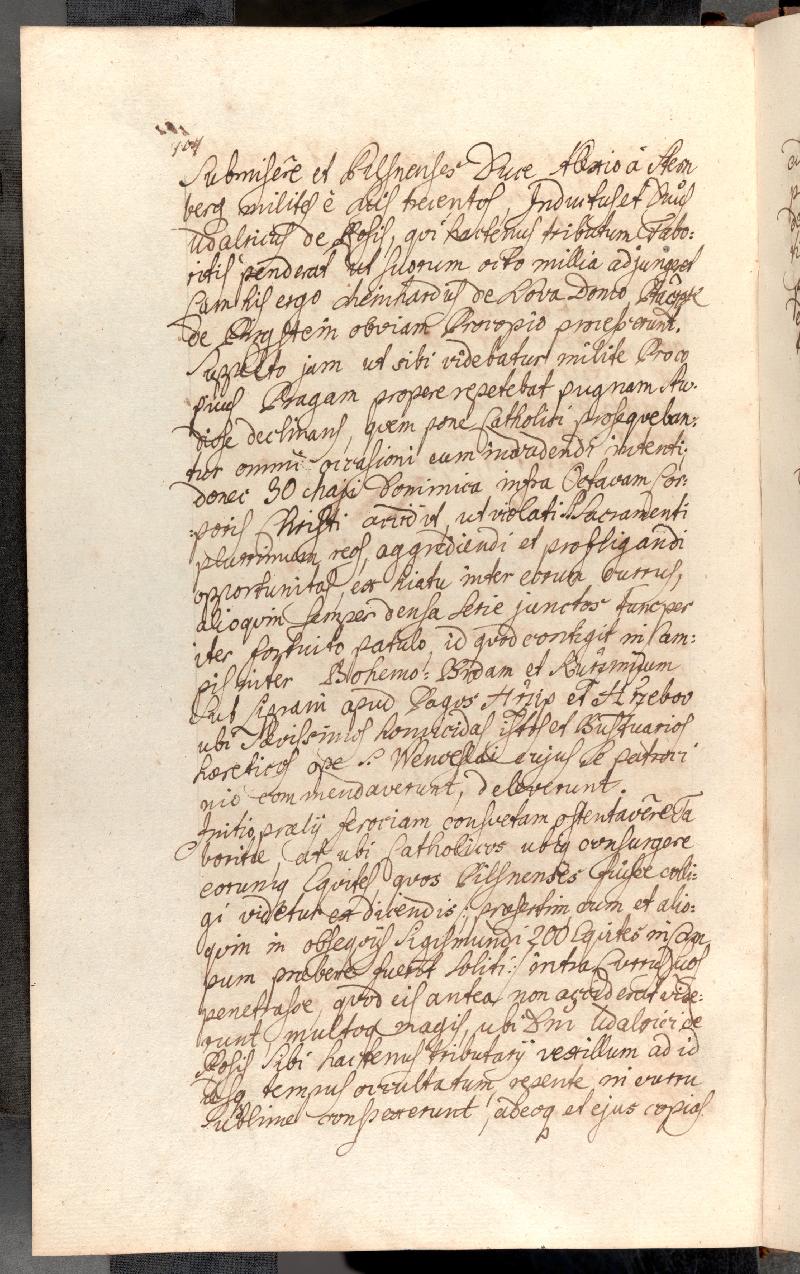 104
Submisere et Pilsnenses Duce Alexio à Stern
berg milites è suis trecentos, Inductus et Dnus
Udalricus de Rosis, qvi hactenus tributum Tabo:
ritis penderat ut suorum octo millia adjungeret
Cum his ergo Meinhardus de Nova Domo, Ptacžek
de Pirgstein obviam Procopio processerunt.
Suppleto jam ut sibi videbatur milite Proco
pius Pragam propere repetebat pugnam stu-
diose declinans, quem pone Catholici proseqveban:
tur omni occasioni eum invadendi intenti:
donec 30 Maji Dominica infra Octavam Cor:
:poris Christi accidit, ut violati Sacramenti
plurimum reos, aggrediendi et profligandi
opportunitas, ex hiatu inter eorum currus,
alioqvin semper densa serie junctos tunc per
iter fortuito patulo, id quod contigit in Cam:
pis inter Bohemo: Brodam et Kuržimium
sub Lipani apud Pagos Hržip et Hržebov
ubi Sævissimos homicidas istos et Bustuarios
hæreticos ope S. Wenceslai cujus se patroci
nio commendaverunt, deleverunt.
Initio prælij ferociam consvetam ostentavêre Ta
boritæ, at ubi Catholicos ubiq consurgere
eorumq Eqvites, quos Pilsnenses fuisse colli:
gi videtur ex dicendis: præsertim cum et alio:
qvin in obseqviis Sigismundi 200 Eqvites in Cam
pum præbere fuerint soliti: intra Currus suos
penetrasse, quod eis antea non acciderat vide:
runt multoq magis, ubi Dni Udalrici de
Rosis sibi hactenus tributarij vexillum ad id
usq tempus occultatum, repente in curru
sublime conspexerunt, adeoq et ejus copias